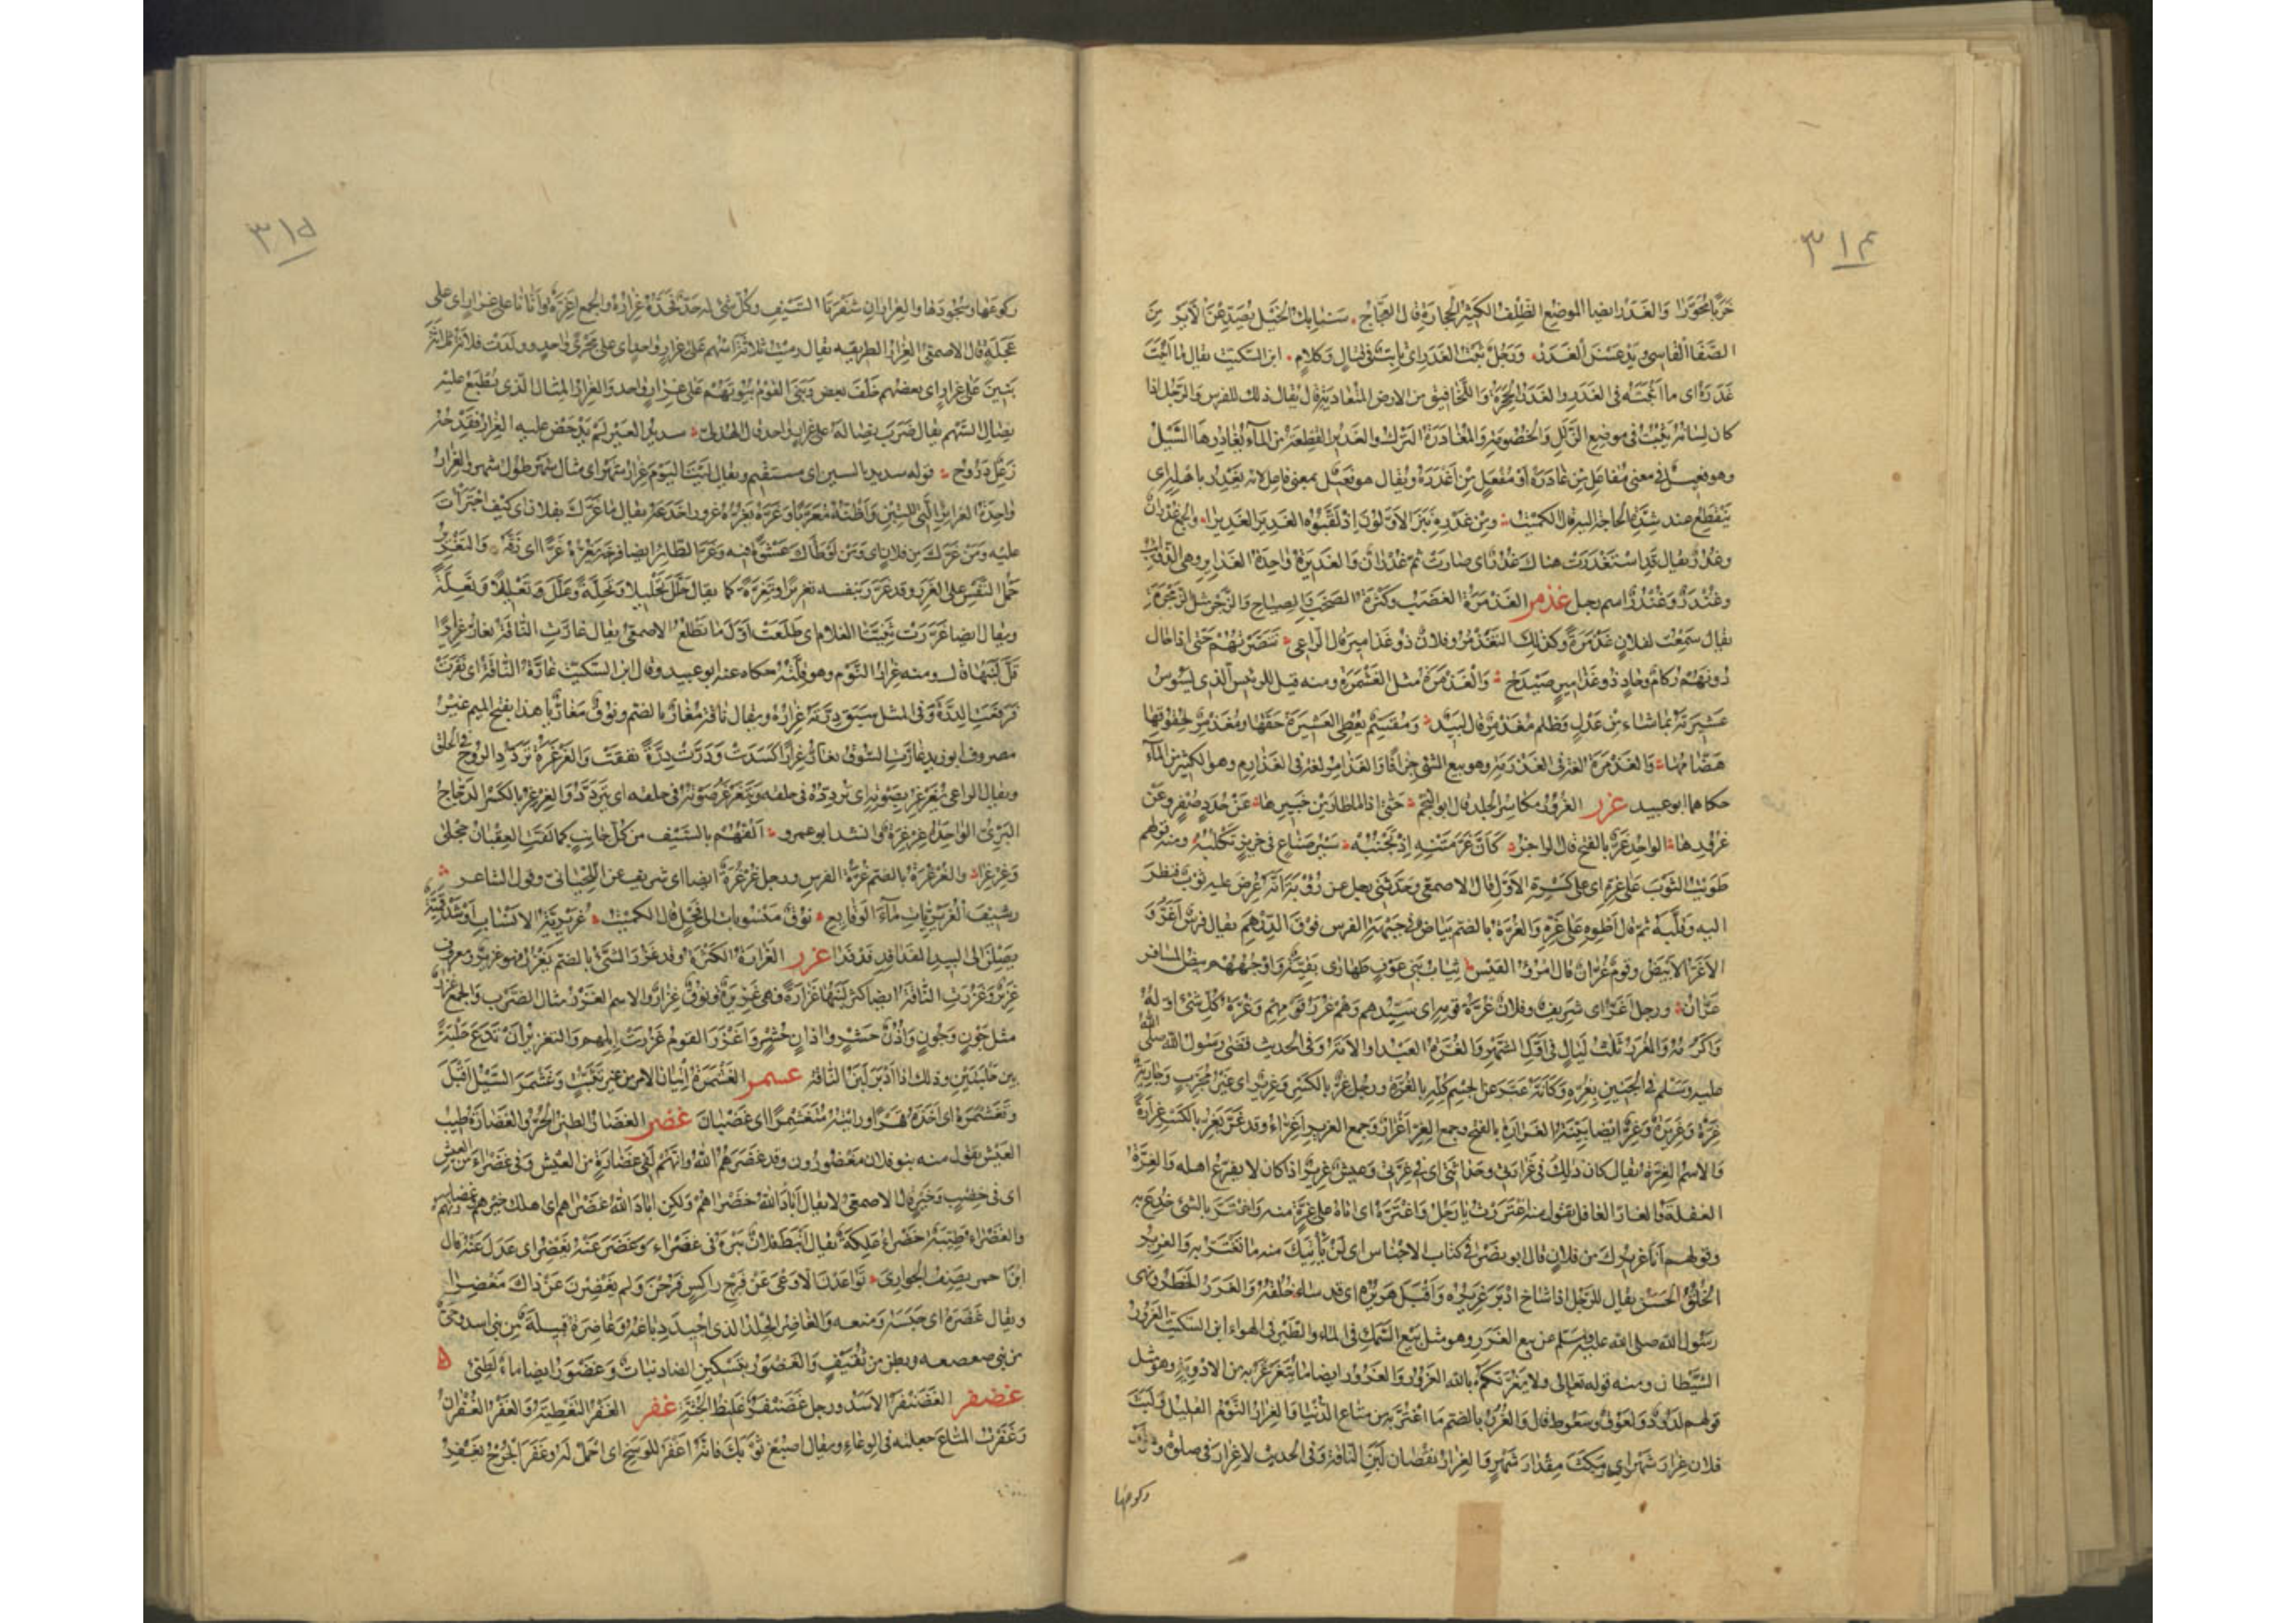 ٣١٤
وَالغَدَر ايضا الموضع الظَّلِف الكثير الحجارة قال العجّاج سنابك الخيل يُصَدِّعنَ الأَيَرّ مِنَ
الصَّفا القاسي ويَدعَسنَ الغَدَر ورجلٌ ثَبت الغَدَر اي ثابت في قتال وكلام ابن السكيت يقال ما اثبت
غَدَره اي ما اثبته في الغَدَر والغَدَر الجِحَرة واللخاقيق من الارض المتعادية قال يقال ذلك للفرس والرجل اذا
كان لسانه يثبت في موضع الزلل والخصومة والمغادرة الترك والغدير القطعة من الماء يغادرها السيل
وهو فعيل في معنى مفاعل من غادره او مفعل من اغدره ويقال هو فعيل بمعنى فاعل لانه يغدر باهله اي
ينقطع عند شدّة الحاجة اليه قال الكميت ومن غدره نبز الاولون اذ لقبوه الغدير الغديرا والجمع غدران
وغُدُر ويقال قد استغدرت هناك غُدُر اي صارت ثَمّ غدران والغديرة واحدة الغدائر وهي الذوائب
وغُندَر وغُندُر اسم رجل غذمر الغذمرة الغضب وكثرة الصخب والصياح والزجر مثل الزمجرة
يقال سمعت لفلان غذمرة وكذلك التغذمر وفلان ذو غذامير قال الراعي تبصرتهم حتى اذا حال
دونهم ركام وحادٍ ذو غذامير صيدح والغذمرة مثل الغشمرة ومنه قيل للرئيس الذي يسوس
عشيرته بما شاء من عدل وظلم مغذمر قال لبيد ومقسّم يعطي العشيرة حقها ومغذمر لحقوقها
هضّامها والغذمرة لغة في الغذرمة وهو بيع الشئ جزافا والغذامر لغة في الغذارم وهو الكثير من الماء
حكاهما ابو عبيد غرر الغرور مكاسر الجلد قال ابو النجم حتى اذا ما طار من خبيرها عن جُدد صُفر وعن
غرورها الواحد غَرّ بالفتح قال الراجز كأنّ غَرّ متنه اذ تجنبه سير صناع في خريز تكلبه ومنه قولهم
طويت الثوب على غَرّه اي على كسره الاول قال الاصمعي وحدثني رجل عن رؤبة انه عُرض عليه ثوب فنظر
اليه وقلّبه ثم قال اطوه على غَرّه والغُرّة بالضم بياض في جبهة الفرس فوق الدرهم يقال فرس اغرّ و
الاغرّ الابيض وقوم غُرّان قال امرؤ القيس ثياب بني عوف طهارى نقيّة واوجههم بيض المسافر
غُرّان ورجل اغرّ اي شريف وفلان غُرّة قومه اي سيّدهم وهم غُرَر قومهم وغُرّة كل شئ اوله
واكرمه والغُرَر ثلث ليال في اول الشهر والغُرّة العبد او الامة وفي الحديث قضى رسول الله صلى الله
عليه وسلم في الجنين بغُرّة وكأنه عبّر عن الجسم كله بالغُرّة ورجل غِرّ بالكسر وغرير اي غير مجرّب وجارية
غِرّة وغريرة وغِرّ ايضا بيّنة الغرارة بالفتح وجمع الغِرّ اغرار وجمع الغرير اغرّاء وقد غَرّ يَغِرّ بالكسر غرارة
والاسم الغِرّة يقال كان ذلك في غرارتي وحداثتي اي في غِرّتي وعيش غرير اذا كان لا يفزّع اهله والغِرّة
الغفلة والغارّ الغافل تقول منه اغتررت يا رجل واغترّه اي اتاه على غِرّة منه واغترّ بالشئ خُدع به
وقولهم انا غريرك من فلان قال ابو نصر في كتاب الاجناس اي لن يأتيك منه ما تغترّ به والغرير
الخُلُق الحسن يقال للرجل اذا شاخ ادبر غريره واقبل هريره اي قد ساء خلقه والغَرَر الخطر ونهى
رسول الله صلى الله عليه وسلم عن بيع الغَرَر وهو مثل بيع السمك في الماء والطير في الهواء ابن السكيت الغَرور
الشيطان ومنه قوله تعالى ولا يغرّنّكم بالله الغَرور والغَرور ايضا ما يُتغرغر به من الادوية وهو مثل
قولهم لدود ولعوق وسعوط قال والغُرور بالضم ما اغترّ به من متاع الدنيا والغِرار النوم القليل ولبث
فلان غِرار شهر اي مكث مقدار شهر والغِرار نقصان لبن الناقة وفي الحديث لا غِرار في صلوة وهو ان
ركوعها
٣١٥
ركوعها وسجودها والغِراران شفرتا السيف وكل شئ له حدّ فحدّه غِراره والجمع اغرّة واتانا على غِرار اي على
عجلة قال الاصمعي الغِرار الطريقة يقال رميت ثلاثة اسهم على غِرار واحد اي على مجرى واحد وولدت فلانة ثلاثة
بنين على غِرار اي بعضهم خلف بعض وبنى القوم بيوتهم على غِرار واحد والغِرار المثال الذي يُطبع عليه
نصال السهم يقال ضرب نصاله على غِرار واحد قال الهذلي سديد العير لم يدحض عليه الغِرار فقدحه
زعل دروج قوله سديد بالسين اي مستقيم ويقال لبثنا اليوم غِرار شهر اي مثال شهر طول شهر والغِرار
واحدة الغرائر التي للتبن واظنه معرّبا وغرّه يغرّه غرورا خدعه يقال ما غرّك بفلان اي كيف اجترأت
عليه ومن غرّك من فلان اي ومن اوطأك عشوة فيه وغرّ الطائر ايضا فرخه يغرّه غَرّا اي زقّه والتغرير
حمل النفس على الغَرَر وقد غرّر بنفسه تغريرا وتغرّة كما يقال حلّل تحليلا وتحلّة وعلّل تعليلا وتعلّة
ويقال ايضا غرّرت ثنيّتا الغلام اي طلعت اول ما تطلع الاصمعي يقال غارّت الناقة تغارّ غِرارا
قلّ لبنها قال ومنه غِرار النوم وهو قلّته حكاه عنه ابو عبيد وقال ابن السكيت غارّت الناقة اي نفرت
فرفعت الدرّة وفي المثل سبق درّته غِراره ويقال ناقة مُغارّ بالضم ونوق مَغارّ يا هذا بفتح الميم غير
مصروف ابو زيد غارّت السوق تغارّ غِرارا كسدت ودرّت درّة نفقت والغرغرة تردّد الروح في الحلق
ويقال الراعي يغرغر بصوته اي يردّده في حلقه ويتغرغر صوته في حلقه اي يتردّد والغِرغِر بالكسر الدجاج
البريّ الواحدة غِرغِرة وانشد ابو عمرو الفّهم بالسيف من كل جانب كما لفّت العقبان حِجلى
وغِرغِرا والغُرغُرة بالضم غُرّة الفرس ورجل غُرغُرة ايضا اي شريف عن اللحياني وقول الشاعر
رشيف الغريريّات ماء الوقائع نوق منسوبات الى فحل قال الكميت غريريّة الانساب او شدقميّة
يصلن الى البيد الفدافد فدفدا غزر الغزارة الكثرة وقد غزر الشئ بالضم يغزر فهو غزير ومعروف
غزير وغزرت الناقة ايضا كثر لبنها غزارة فهي غزيرة ونوق غِزار والاسم الغَزر مثال الضرب والجمع غُزر
مثل جَون وجُون واذن حَشر واذان حُشر واغزر القوم غزرت ابلهم والتغزير ان تدع حلبة
بين حلبتين وذلك اذا ادبر لبن الناقة غسمر الغشمرة اتيان الامر من غير تثبّت وغشمر السيل اقبل
وتغشمره اي اخذه قهرا ورأيته متغشمرا اي غضبان غضر الغضار الطين الحرّ والغضارة طيب
العيش تقول منه بنو فلان مغضورون وقد غضرهم الله وانهم لفي غضارة من العيش وفي غضراء من العيش
اي في خصب وخير قال الاصمعي لا يقال اباد الله خضراهم ولكن اباد الله غضراهم اي اهلك خيرهم وغضارتهم
والغضراء طينة خضراء علكة يقال انبط فلان بئره في غضراء وغضر عنه يغضر اي عدل عنه قال
ابن احمر يصف الجواري تواعدن ان لا وعى عن فرج راكس فرحن ولم يغضرن عن ذاك مغضرا
ويقال غضره اي حبسه ومنعه والغاضر الجلد الذي اجيد دباغه وغاضرة قبيلة من بني اسد وحيّ
من بني صعصعه وبطن من ثقيف والغضور بتسكين الضاد نبات وغضور ايضا ماء لطيّئ
غضنفر الغضنفر الاسد ورجل غضنفر غليظ الجثة غفر الغفر التغطية والغفر الغفران
وغفرت المتاع جعلته في الوعاء ويقال اصبغ ثوبك فانه اغفر للوسخ اي احمل له وغفر الجرح يغفر